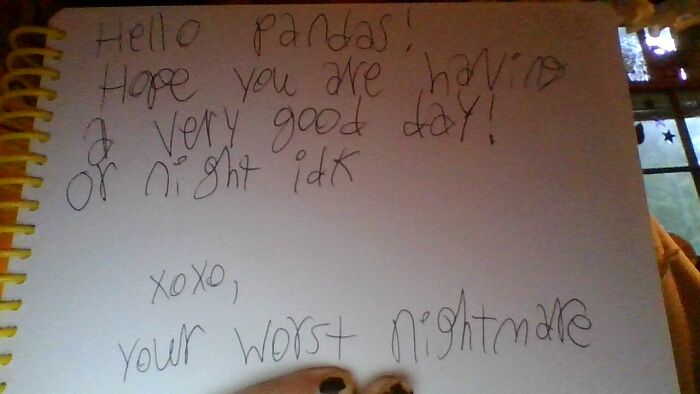 Hello pandas!
Hope you are having
a very good day!
or night idk
xoxo,
your worst nightmare